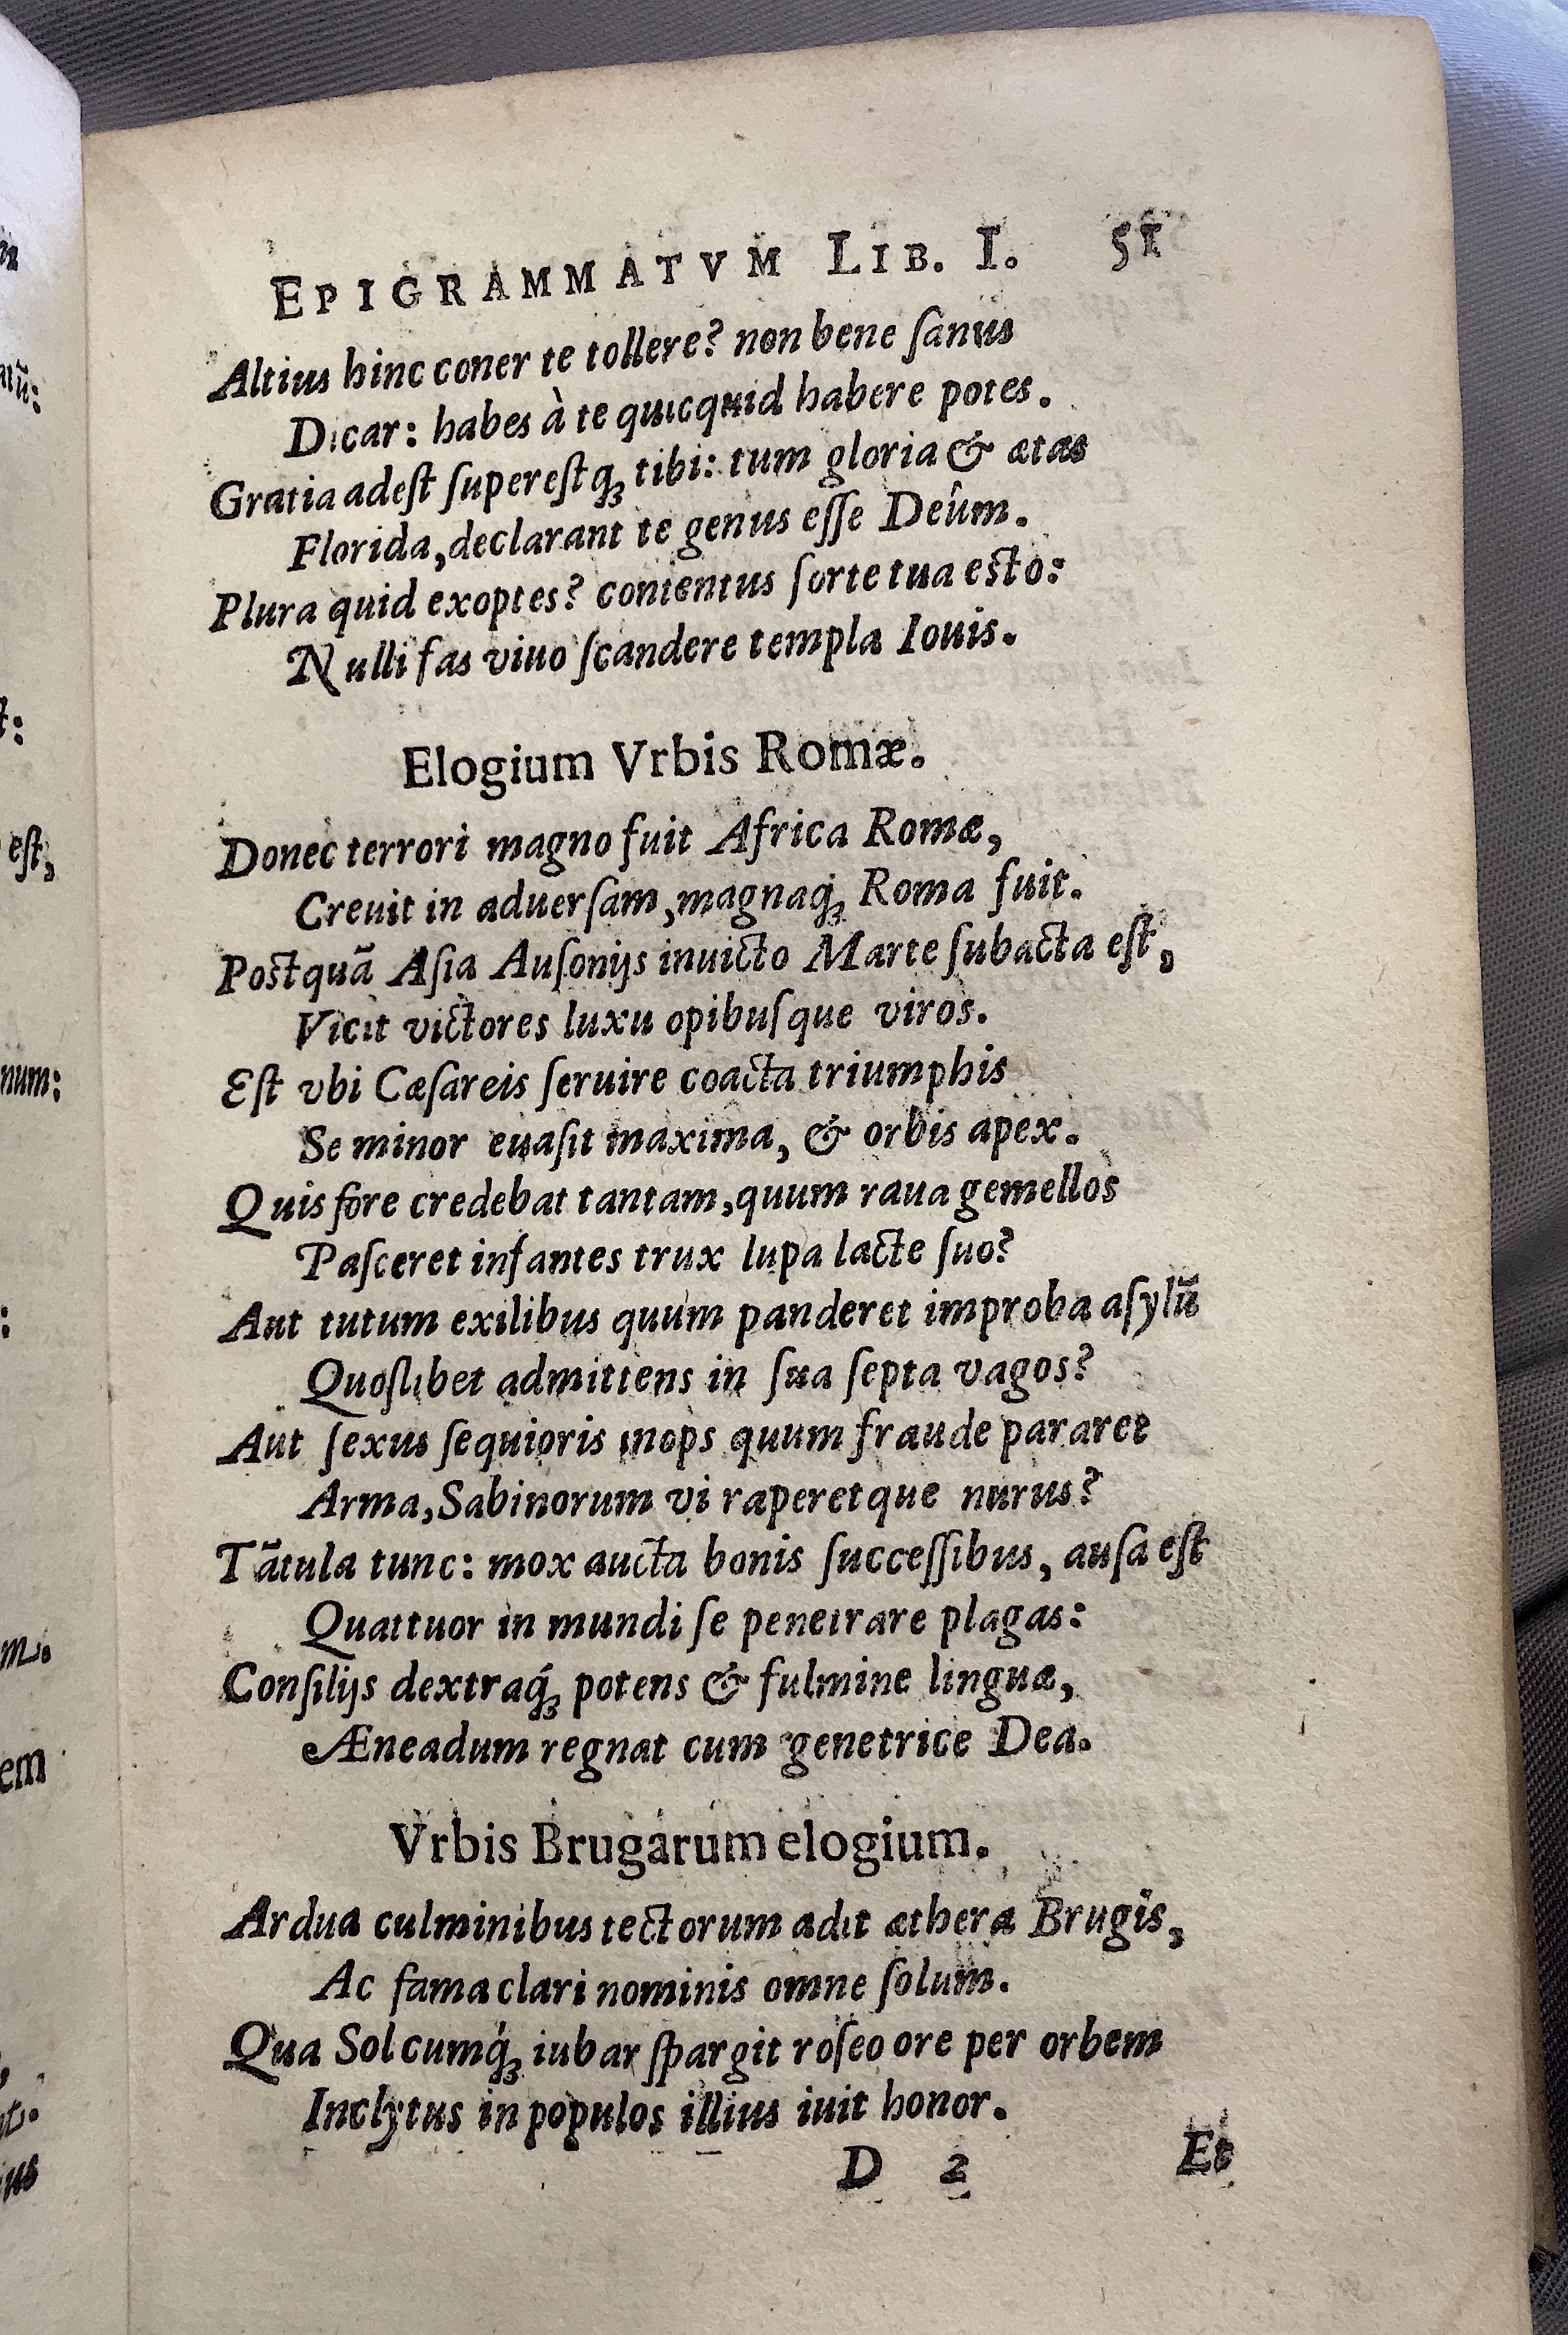 EPIGRAMMATVM LIB. I. 51
Altius hinc coner te tollere? non bene ſanus
Dicar: habes à te quicquid habere potes.
Gratia adeſt ſupereſtq́ꝫ tibi: tum gloria & ætas
Florida, declarant te genus eſſe Deûm.
Plura quid exoptes? contentus ſorte tua esto:
Nulli fas viuo ſcandere templa Iouis.
Elogium Vrbis Romæ.
Donec terrori magno fuit Africa Romæ,
Creuit in aduerſam, magnaq́ꝫ Roma fuit.
Postquã Aſia Auſonijs inuicto Marte ſubacta eſt,
Vicit victores luxu opibuſque viros.
Eſt vbi Cæſareis ſeruire coacta triumphis
Se minor euaſit maxima, & orbis apex.
Quis fore credebat tantam, quum raua gemellos
Paſceret infantes trux lupa lacte ſuo?
Aut tutum exilibus quum panderet improba aſylũ
Quoſlibet admittens in ſua ſepta vagos?
Aut ſexus ſequioris inops quum fraude pararet
Arma, Sabinorum vi raperetque nurus?
Tãtula tunc: mox aucta bonis ſucceſſibus, auſa eſt
Quattuor in mundi ſe penetrare plagas:
Conſilijs dextraq́ꝫ potens & fulmine linguæ,
Æneadum regnat cum genetrice Dea.
Vrbis Brugarum elogium.
Ardua culminibus tectorum adit æthera Brugis,
Ac fama clari nominis omne ſolum.
Qua Sol cumq́ꝫ iubar ſpargit roſeo ore per orbem
Inclytus in populos illius iuit honor.
D 2 Et
est,
num:
em